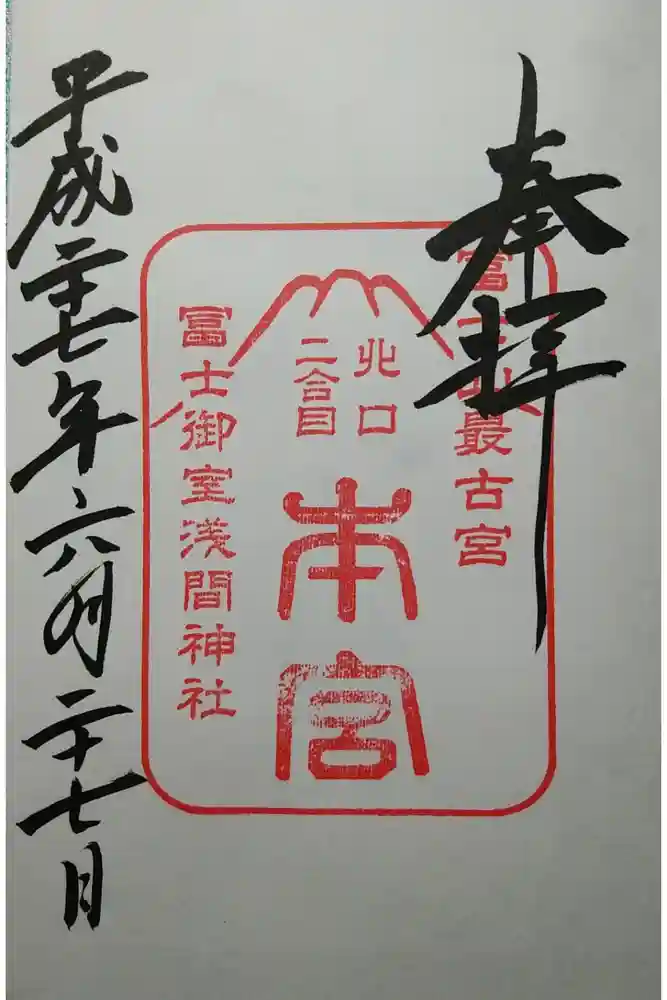 奉拝
富士山最古宮
北口
二合目
本宮
冨士御室浅間神社
平成二十七年六月二十七日